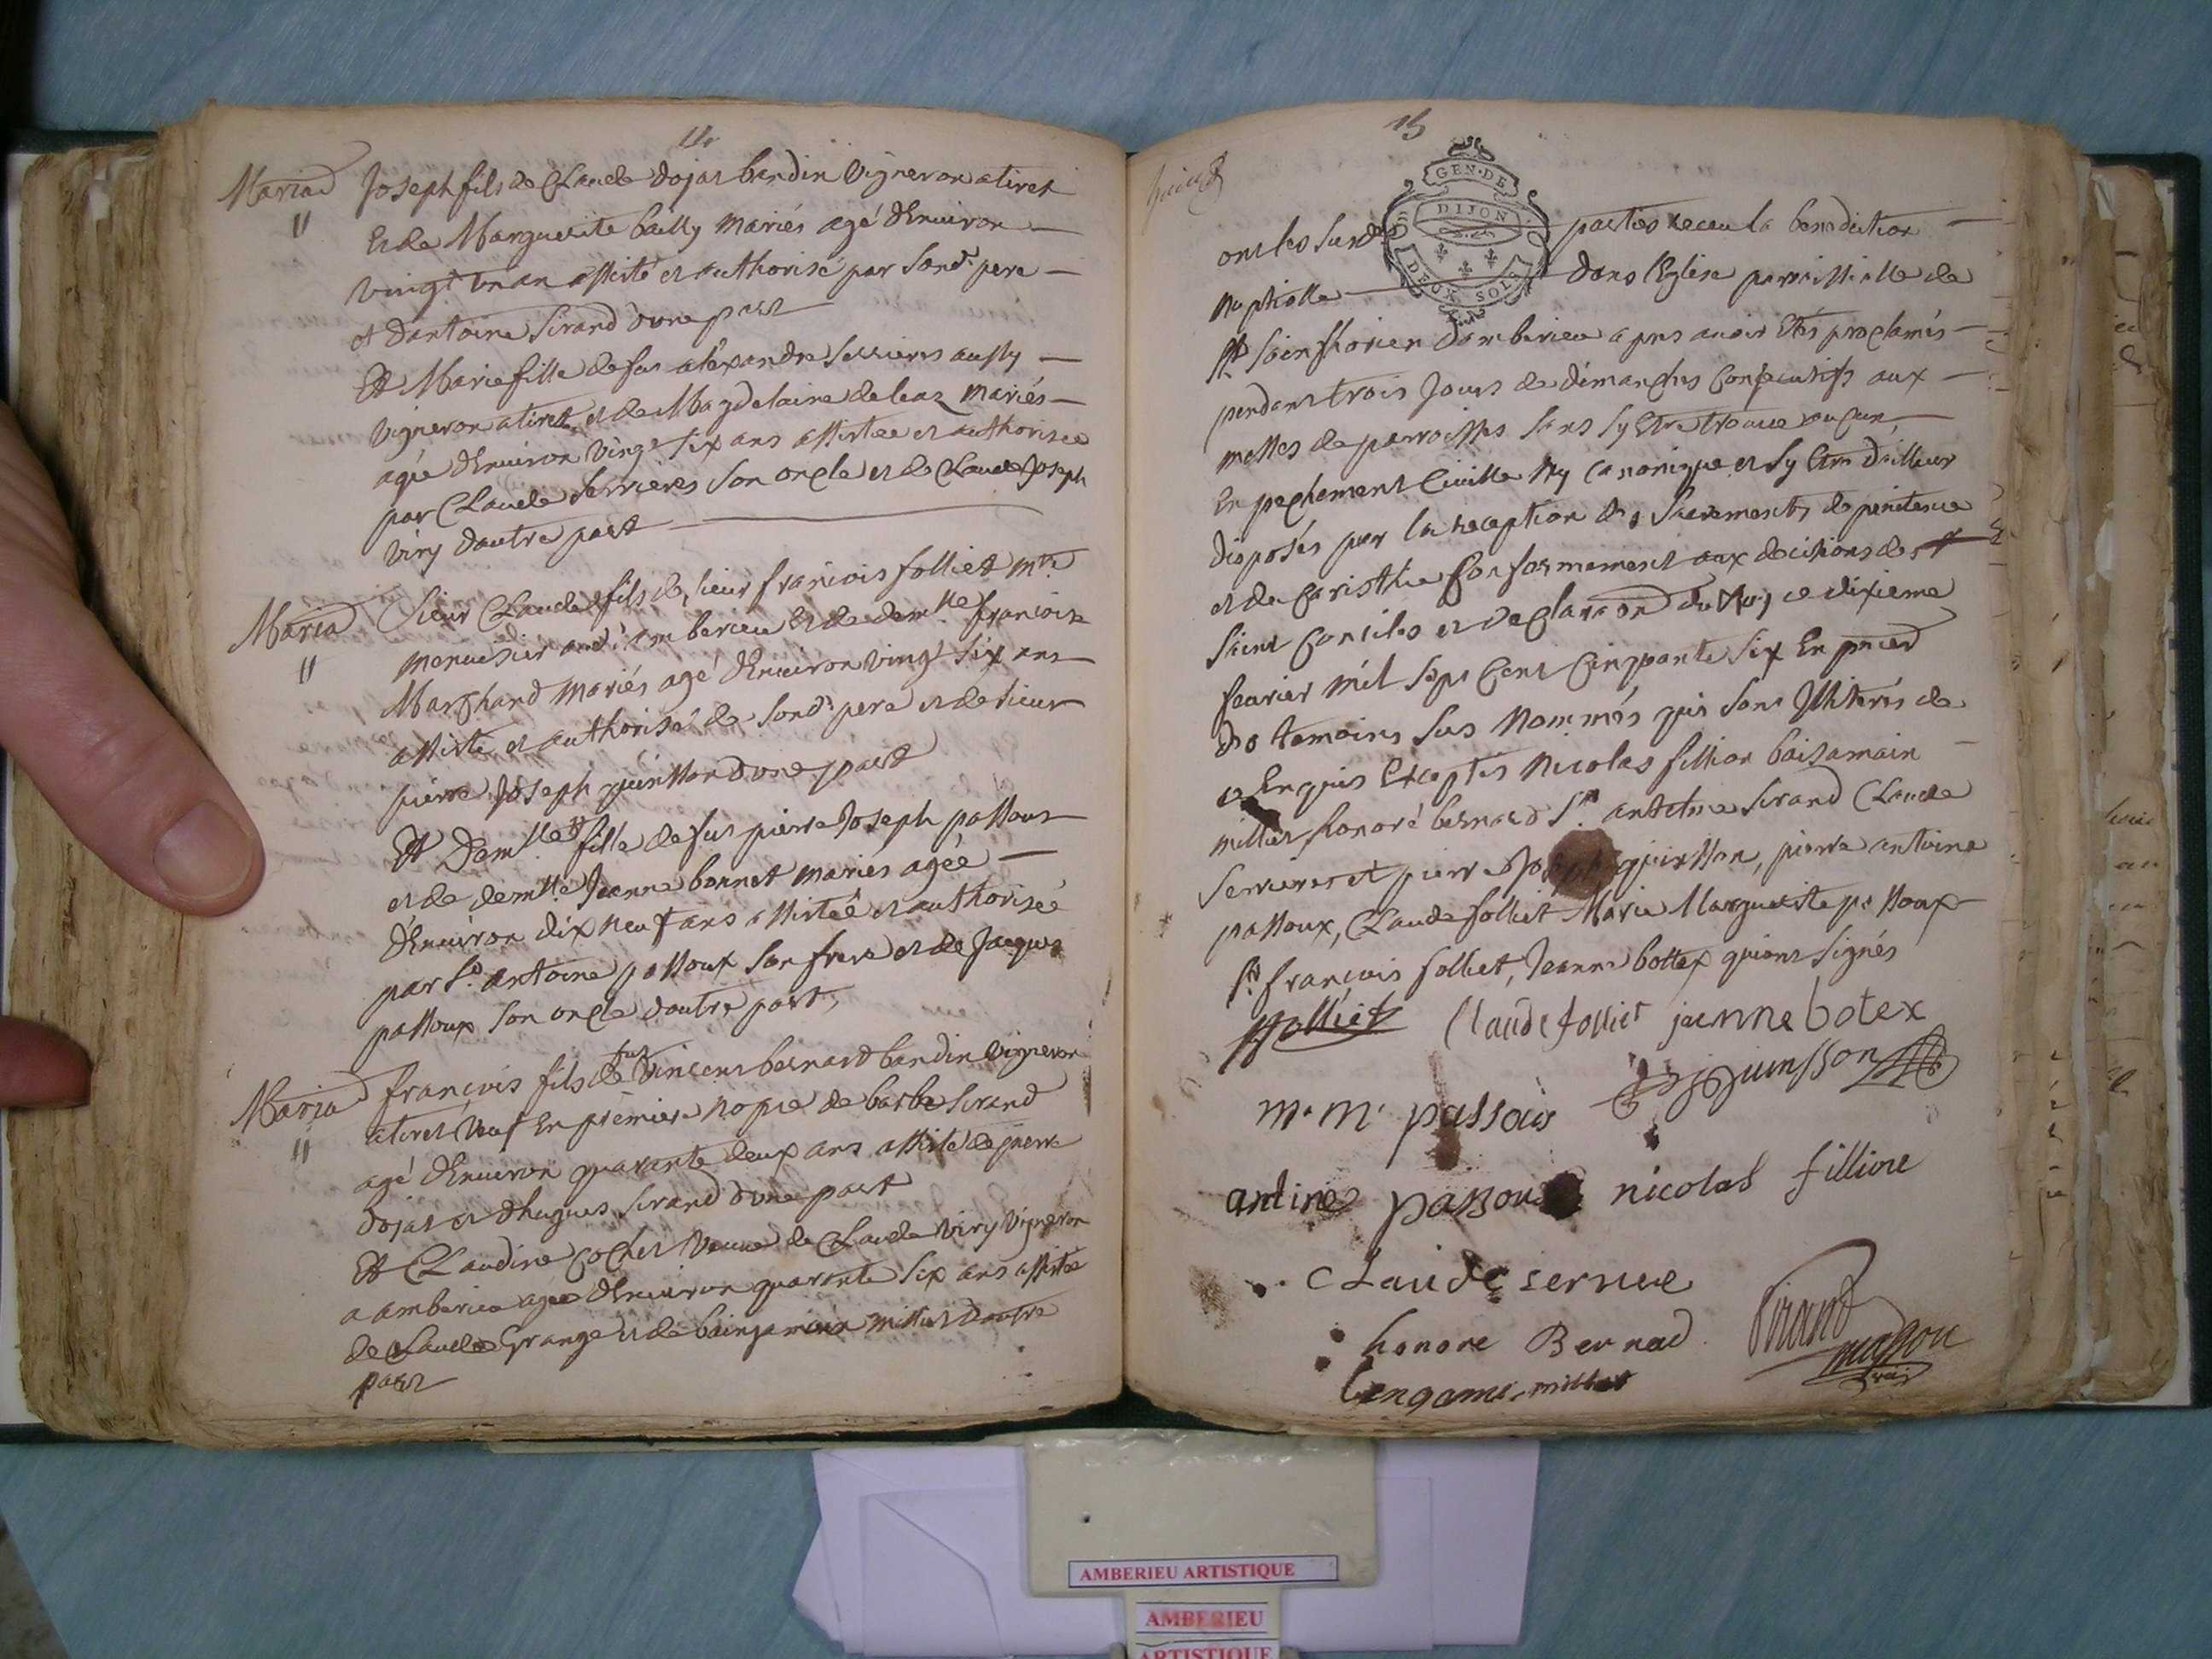 14
Mariad Joseph fils de Claude dojat bandin Vigneron atiret
" Et de Marguerite bailly mariés agé d'Environ
vingt un an assisté et authorisé par sond. pere
et d'antoine Sirand d'une part
Et Marie fille de fut alexandre Serrieres aussy
vigneron atiret et de Magdelaine deleaz mariés
agée d'Environ vingt six ans assistée et authorisée
par Claude Serrieres son oncle et de Claude Joseph
Viry d'autre part
Mariad Sieur Claude fils de sieur françois folliet mtre
" menuisier aud. amberieu et de demlle françoise
Marchand mariés agé d'Environ vingt six ans
assisté et authorisé de sond. pere et de sieur
pierre Joseph guinsson d'une part
Et Demlle fille de fut pierre Joseph passoux
et de demlle Jeanne bonnet mariés agée
d'Environ dix neuf ans assistée et authorisée
par Sr. antoine passoux son frere et de Jacques
passoux son oncle d'autre part,
Mariad françois fils de fut Vincent bernard bandin vigneron
" atiret veuf En premiere nopce de barbe Sirand
agé d'Environ quarante deux ans assisté de pierre
dojat et d'hugues Sirand d'une part
Et Claudine Cochet veuve de Claude Viry vigneron
a amberieu agée d'Environ quarante six ans assistée
de Claude Grange et de bainjamin millet d'autre
part
15
GEN·DE
DIJON
DEUX SOLS
ont les susd. parties receu la benediction
nuptialle dans l'Eglise parroissialle de
St. Sainphorien d'amberieu apres avoir Etés proclamés
pendant trois Jours de dimanches Consecutifs aux
messes de parroisses sans sy Etre trouvé aucun
Enpechement Civille ny Canonique et sy Etre d'ailleur
disposés par la reception des Sacrements de penitence
et de Caristhie Conformement aux decisions des
saint Conciles et declaraon du Roy ce dixieme
fevrier mil sept Cent Cinquante six En pnce
des temoins sus nommés qui sont Illiterés de
ce Enquis Exceptés Nicolas fillion baisamain
millet honoré bernard Sr. anthelme Sirand Claude
Serrieres et pierre Joseph guinsson, pierre antoine
passoux, Claude folliet Marie Marguerite passoux
Sr. françois folliet, Jeanne bottex qui ont signés
ffolliet Claude folliet jeanne botex
pjguinsson
m. m. passoux
antine passoux nicolas fillion
Claude serriere
honore Bernad Sirand
bengami millet masson
AMBERIEU ARTISTIQUE
AMBERIEU
ARTISTIQUE